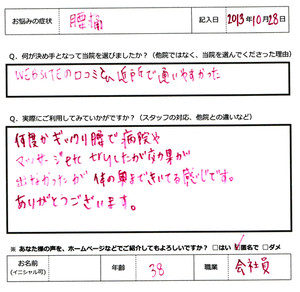 お悩みの症状 腰痛 記入日 2013年10月28日
Q. 何が決め手となって当院を選びましたか？（他院ではなく、当院を選んでくださった理由）
WEBSITEの口コミと近所で通いやすかった
Q. 実際にご利用してみていかがですか？（スタッフの対応、他院との違いなど）
何度かぎっくり腰で病院や
マッサージをされたりしたが効果が
出なかったが 体の奥まできいてる感じです。
ありがとうございます。
※ あなた様の声を、ホームページなどでご紹介してもよろしいですか？ □はい ☑匿名で □ダメ
お名前 (イニシャル可) 年齢 38 職業 会社員